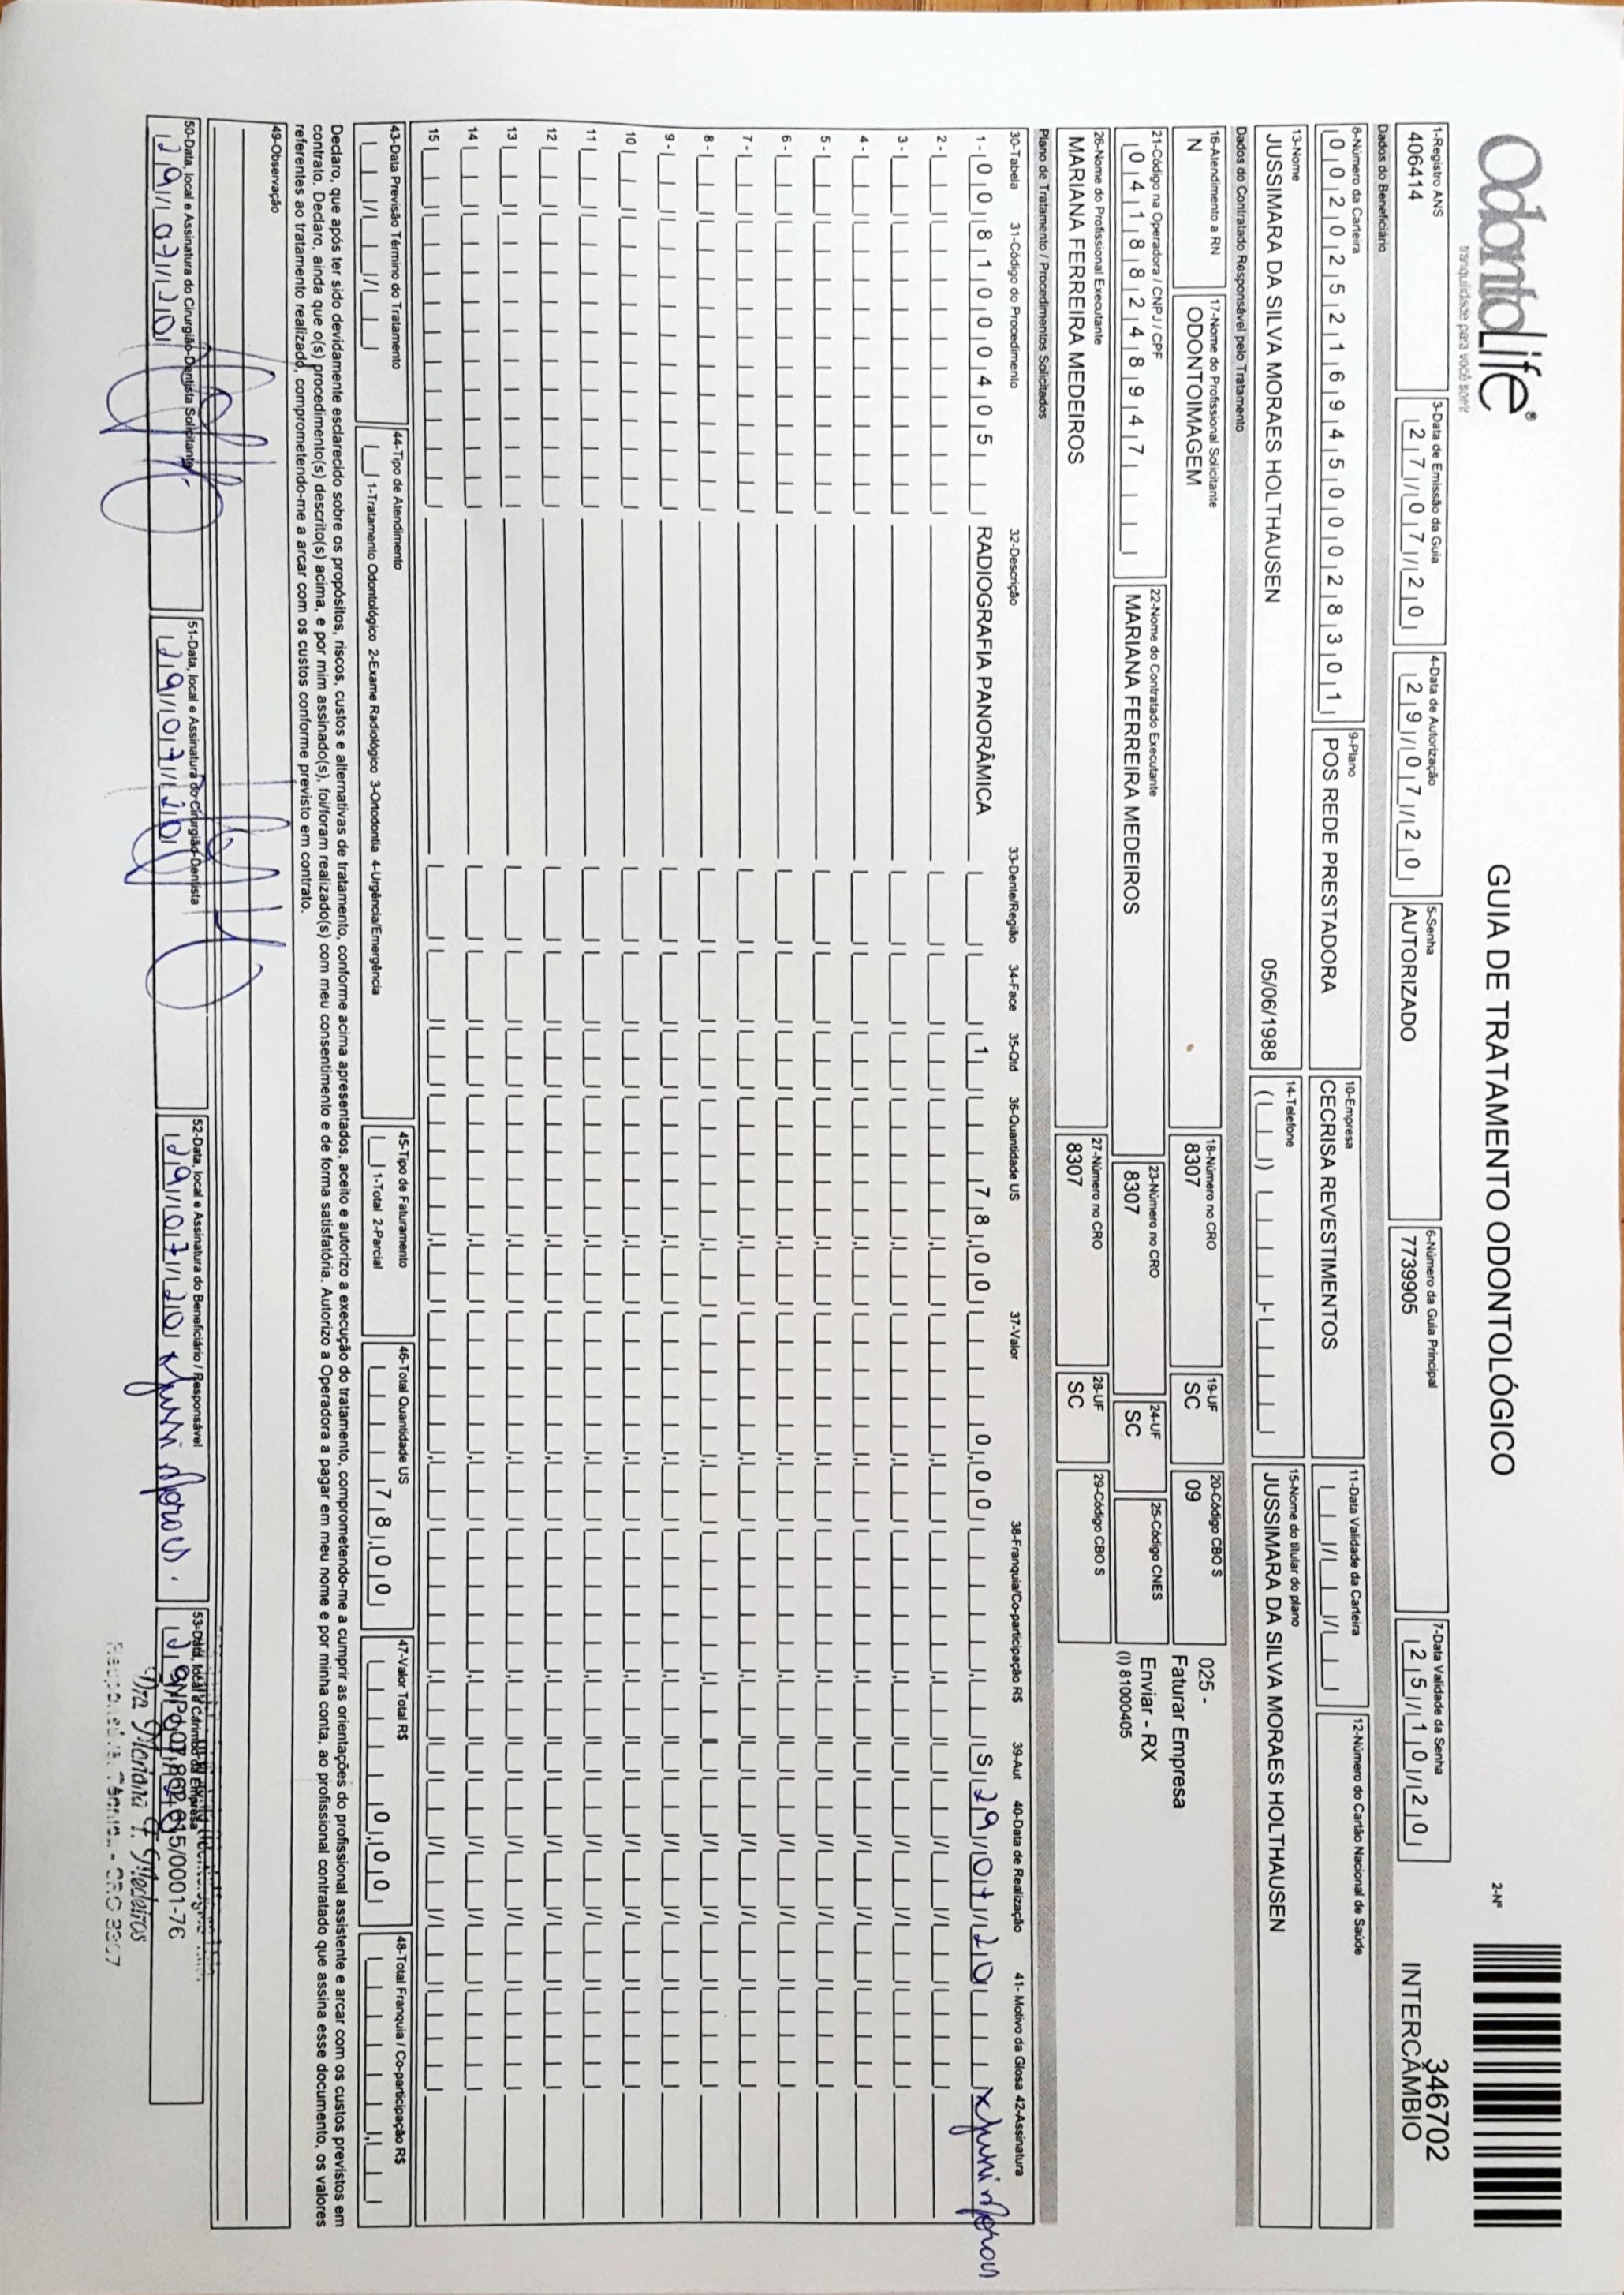 OdontoLife®
tranquilidade para você sorrir
GUIA DE TRATAMENTO ODONTOLÓGICO
2-Nº
346702
INTERCÂMBIO
1-Registro ANS
406414
3-Data de Emissão da Guia
27/07/20
4-Data de Autorização
29/07/20
5-Senha
AUTORIZADO
6-Número da Guia Principal
7739905
7-Data Validade da Senha
25/10/20
Dados do Beneficiário
8-Número da Carteira
00202521694500028301
9-Plano
POS REDE PRESTADORA
10-Empresa
CECRISA REVESTIMENTOS
11-Data Validade da Carteira
12-Número do Cartão Nacional de Saúde
13-Nome
JUSSIMARA DA SILVA MORAES HOLTHAUSEN
05/06/1988
14-Telefone
15-Nome do titular do plano
JUSSIMARA DA SILVA MORAES HOLTHAUSEN
Dados do Contratado Responsável pelo Tratamento
16-Atendimento a RN
N
17-Nome do Profissional Solicitante
ODONTOIMAGEM
18-Número no CRO
8307
19-UF
SC
20-Código CBO S
09
025 -
Faturar Empresa
Enviar - RX
(I) 81000405
21-Código na Operadora / CNPJ / CPF
04188248947
22-Nome do Contratado Executante
MARIANA FERREIRA MEDEIROS
23-Número no CRO
8307
24-UF
SC
25-Código CNES
26-Nome do Profissional Executante
MARIANA FERREIRA MEDEIROS
27-Número no CRO
8307
28-UF
SC
29-Código CBO S
Plano de Tratamento / Procedimentos Solicitados
30-Tabela 31-Código do Procedimento 32-Descrição 33-Dente/Região 34-Face 35-Qtd 36-Quantidade US 37-Valor 38-Franquia/Co-participação R$ 39-Aut 40-Data de Realização 41- Motivo da Glosa 42-Assinatura
1- 00 81000405 RADIOGRAFIA PANORÂMICA 1 78,00 0,00 S 29/07/20
2-
3-
4-
5-
6-
7-
8-
9-
10
11
12
13
14
15
43-Data Previsão Término do Tratamento
44-Tipo de Atendimento
1-Tratamento Odontológico 2-Exame Radiológico 3-Ortodontia 4-Urgência/Emergência
45-Tipo de Faturamento
1-Total 2-Parcial
46-Total Quantidade US
78,00
47-Valor Total R$
0,00
48-Total Franquia / Co-participação R$
Declaro, que após ter sido devidamente esclarecido sobre os propósitos, riscos, custos e alternativas de tratamento, conforme acima apresentados, aceito e autorizo a execução do tratamento, comprometendo-me a cumprir as orientações do profissional assistente e arcar com os custos previstos em
contrato. Declaro, ainda que o(s) procedimento(s) descrito(s) acima, e por mim assinado(s), foi/foram realizado(s) com meu consentimento e de forma satisfatória. Autorizo a Operadora a pagar em meu nome e por minha conta, ao profissional contratado que assina esse documento, os valores
referentes ao tratamento realizado, comprometendo-me a arcar com os custos conforme previsto em contrato.
49-Observação
50-Data, local e Assinatura do Cirurgião-Dentista Solicitante
29/07/20
51-Data, local e Assinatura do Cirurgião-Dentista
29/07/20
52-Data, local e Assinatura do Beneficiário / Responsável
29/07/20
53-Data, local e Carimbo da Empresa
Dra Mariana F. Medeiros